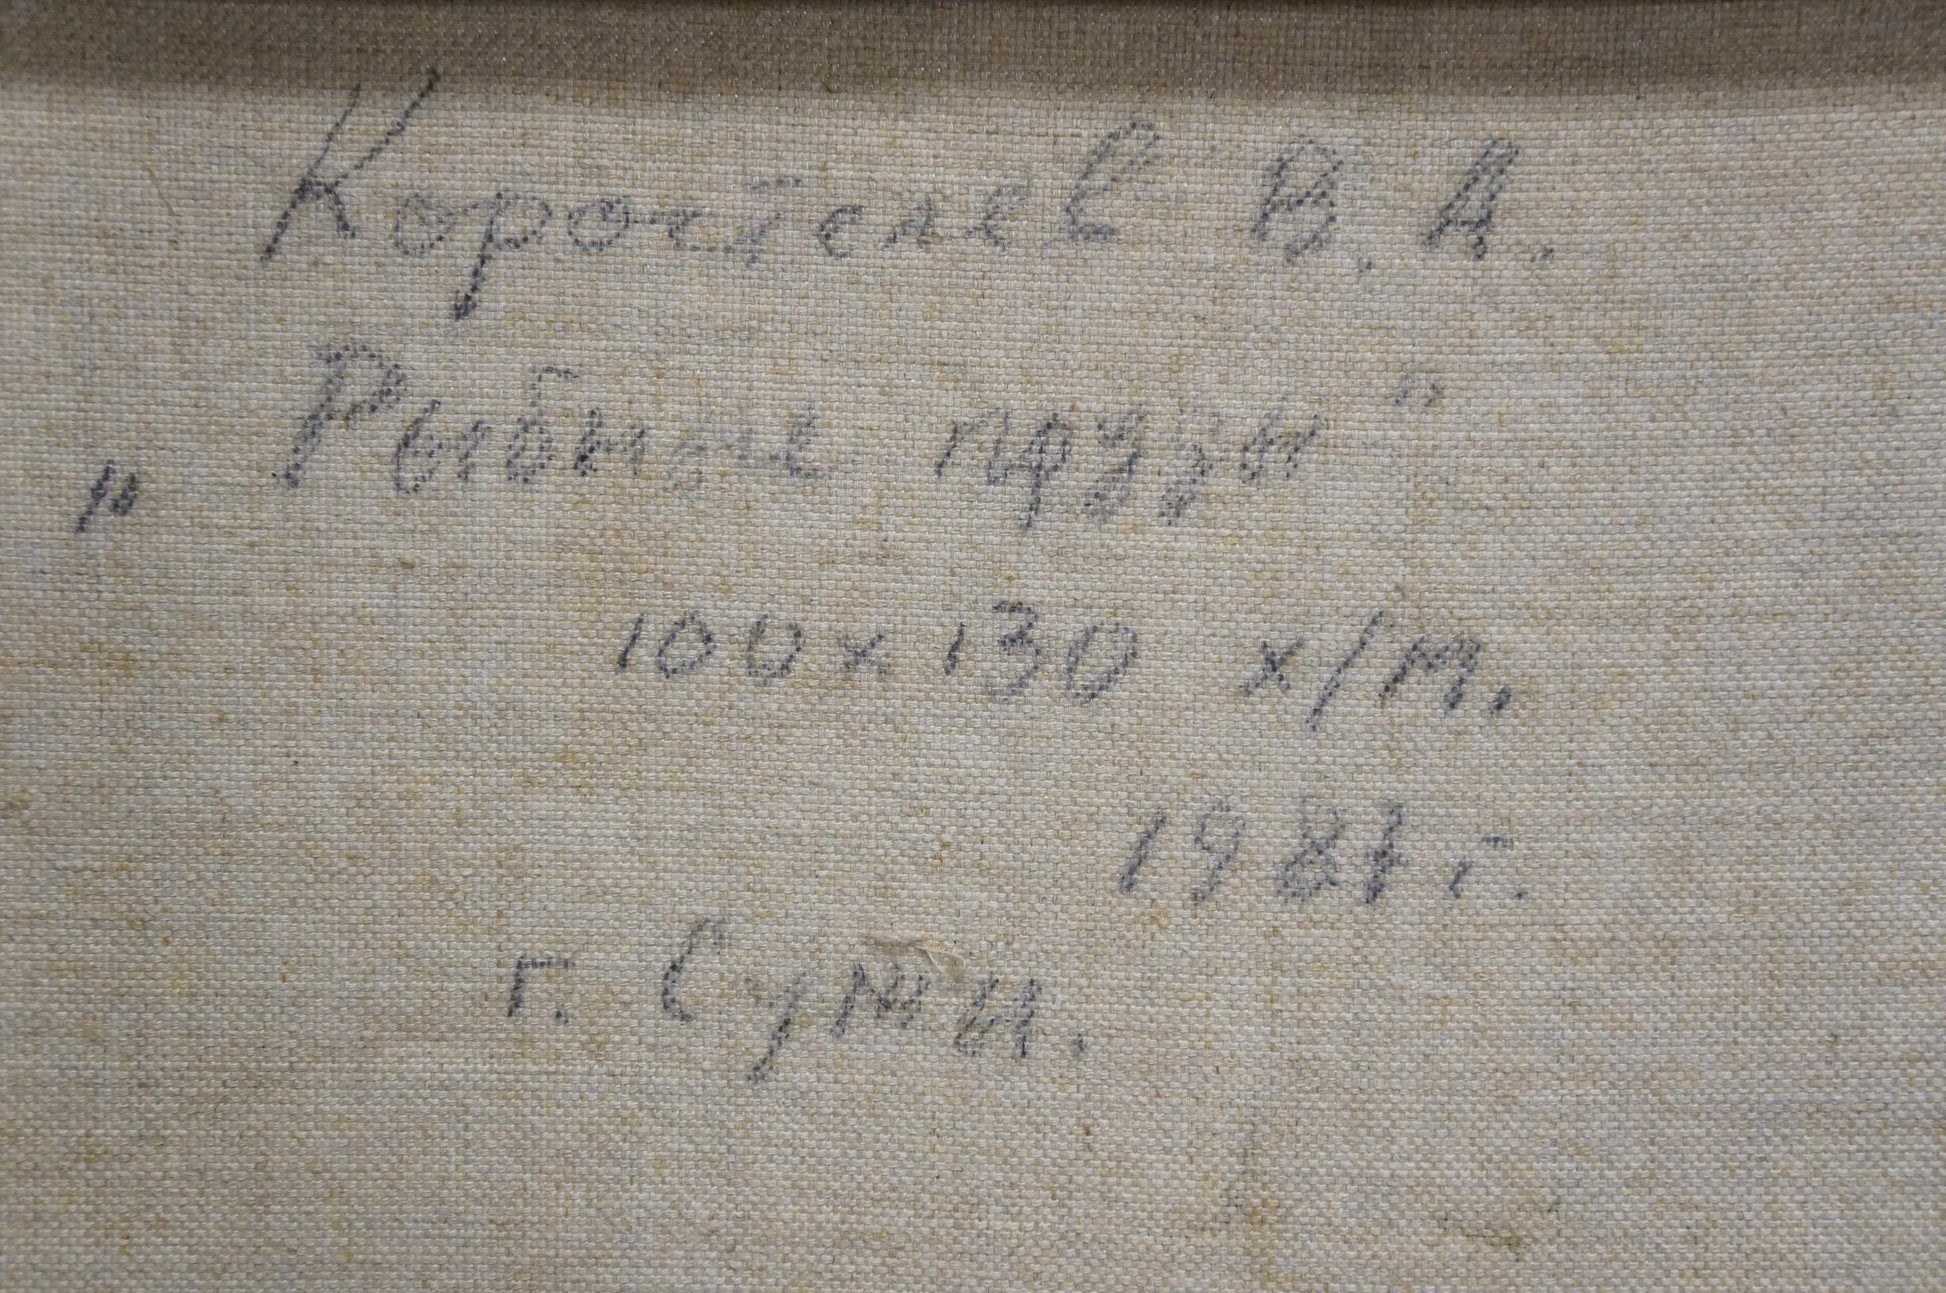 Коростелев В. А.
„Рыбные пруды"
100х130 х/м.
1987 г.
г. Сумы.